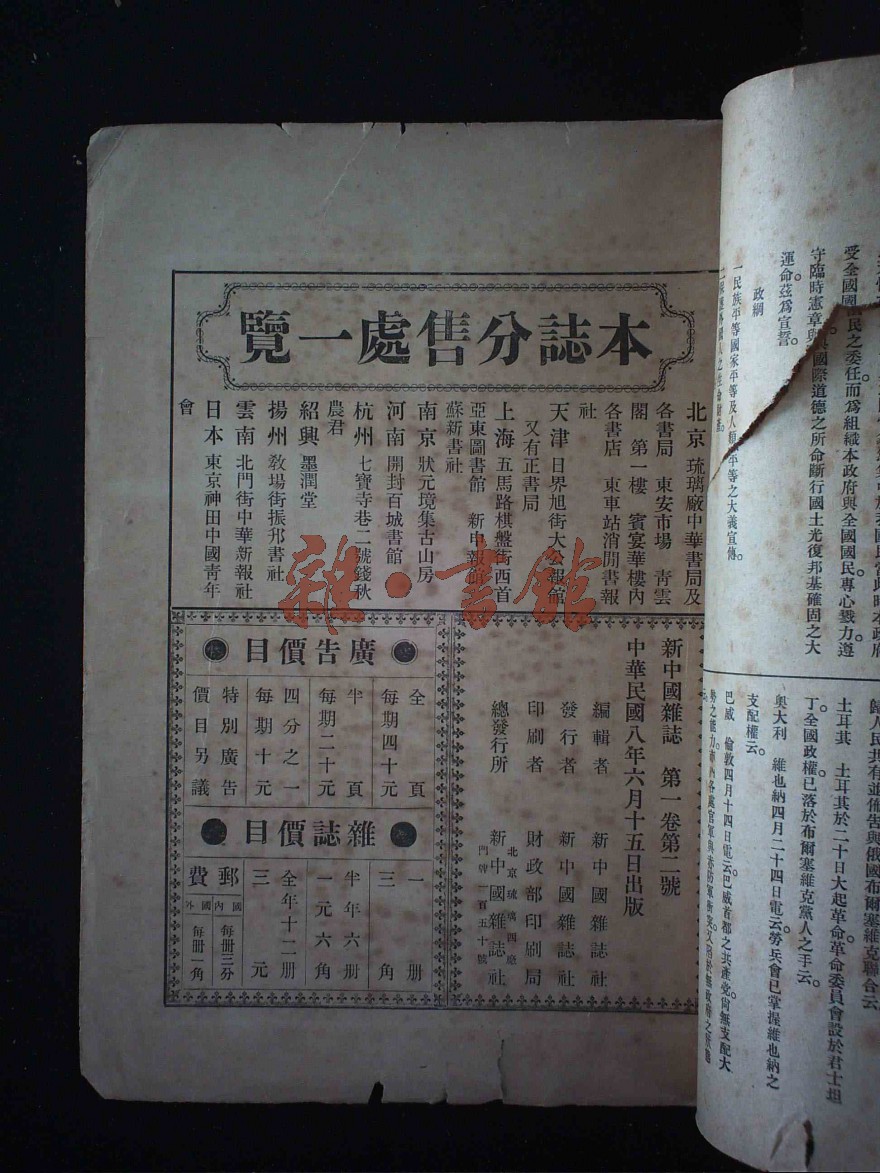 運命茲爲宣誓。
政綱
一民族平等國家平等及人類平等之大義宣傳。
受全國國民之委任而爲組織本政府與全國國民專心戮力遵
國際道德之所命斷行國土光復邦基確固之大
歸人民共有並佈告與俄國布爾塞維克聯合云
土耳其 土耳其於二十日大起革命革命委員會設於君士坦
丁。全國政權已落於布爾塞維克黨人之手云。
奧大利 維也納四月二十四日電云勞兵會已掌握維也納之
支配權云。
巴威 倫敦四月十四日電云。巴威首都之共產党尙無支配大
本誌分售處一覽
北京 琉璃廠中華書局及
各書局 東安市場 靑雲
閣 第一樓 賓宴華樓內
各書店 東車站消閒書報
社
天津 日界旭街大公報館
又有正書局
上海 五馬路棋盤街西首
亞東圖書館 新申報館
蘇新書社
南京 狀元境集古山房
河南 開封百城書館
杭州 七寶寺巷二號錢秋
農君
紹興 墨潤堂
揚州 敎場街振邧書社
雲南 北門街中華新報社
日本 東京神田中國靑年
會
雜·書館
新中國雜誌 第一卷第二號
中華民國八年六月十五日出版
編輯者 新中國雜誌社
發行者 新中國雜誌社
印刷者 財政部印刷局
總發行所 北京琉璃西廠門牌一百五十號 新中國雜誌社
廣告價目
全頁
每期四十元
半頁
每期二十元
四分之一
每期十元
特別廣告
價目另議
雜誌價目
一册
三角
半年六册
一元六角
全年十二册
三元
郵費
國內
每册三分
國外
每册一角